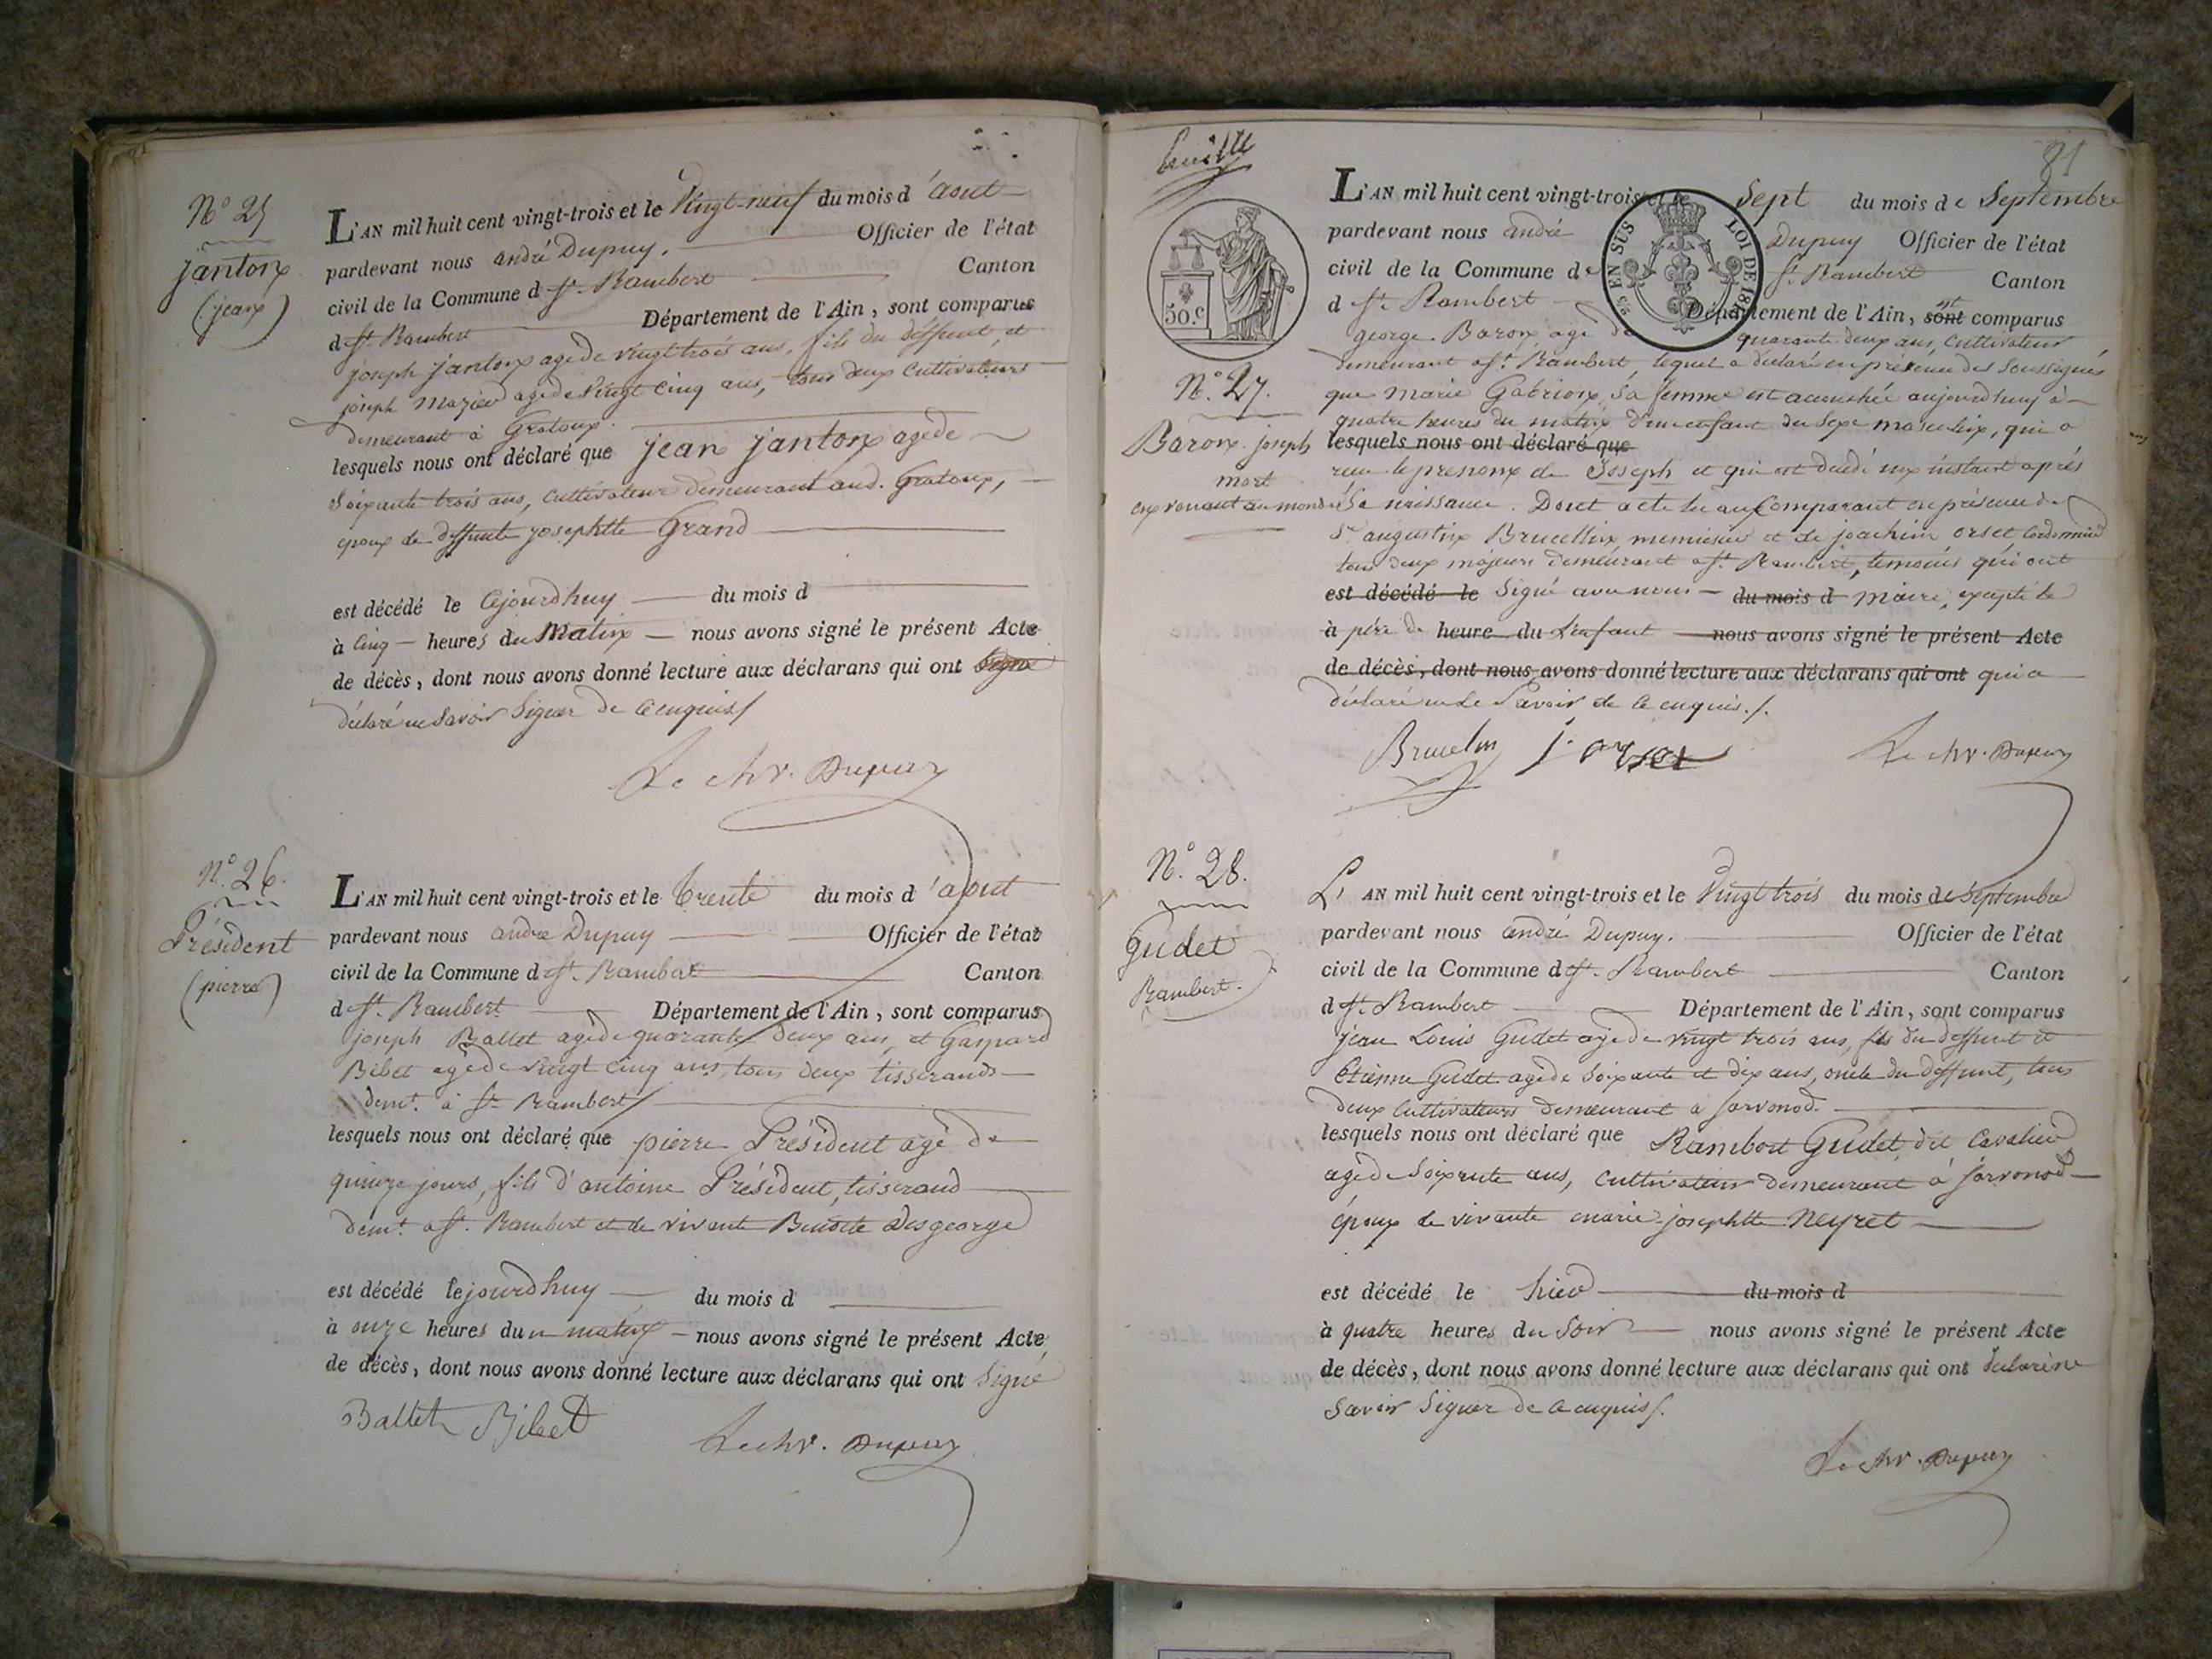 N° 25
janton
(jean)
L'AN mil huit cent vingt-trois et le Vingt-neuf du mois d'aout
pardevant nous andré Dupuy. Officier de l'état
civil de la Commune d St. Rambert Canton
d St. Rambert Département de l'Ain, sont comparus
joseph janton agé de vingt trois ans, fils du deffunt, et
joseph Mazier agé de vingt cinq ans, tous deux cultivateurs
demeurant à Gratoux.
lesquels nous ont déclaré que jean janton agé de
soixante trois ans, cultivateur demeurant aud. Gratoux,
epoux de deffunte josephtte Grand
est décédé le cejourdhuy du mois d
à cinq heures du Matin nous avons signé le présent Acte
de décès, dont nous avons donné lecture aux déclarans qui ont signé
déclaré ne savoir signer de ce enquis/
Le chr. Dupuy
N° 26.
Président
(pierre)
L'AN mil huit cent vingt-trois et le trente du mois d'aout
pardevant nous andré Dupuy Officier de l'état
civil de la Commune d St. Rambert Canton
d St. Rambert Département de l'Ain, sont comparus
joseph Ballet agé de quarante deux ans, et Gaspard
Bibet agé de vingt cinq ans, tous deux tisserands
demt. à St. Rambert/
lesquels nous ont déclaré que pierre Président agé de
quinze jours, fils d'antoine Président, tisserand
demt. a St. Rambert et de vivante Benoite Desgeorge
est décédé lejourdhuy du mois d
à onze heures du matin nous avons signé le présent Acte
de décès, dont nous avons donné lecture aux déclarans qui ont signé
Ballet Bibet
Le chr. Dupuy
81
L'AN mil huit cent vingt-trois et le sept du mois de Septembre
pardevant nous andré Dupuy Officier de l'état
civil de la Commune de St. Rambert Canton
d St. Rambert Département de l'Ain, sont est comparus
25 EN SUS LOI DE 18
50.c
george Baron agé de quarante deux ans, cultivateur
demeurant a St. Rambert, lequel a déclaré en présence des soussignés
N° 27.
Baron joseph
mort
en venant au monde
que Marie Gabrion, sa femme est accouchée aujourdhuy à
quatre heures du matin d'un enfant du sexe masculin, qui a
lesquels nous ont déclaré que
recu le prenom de Joseph et qui est décédé un instant après
sa naissance. Donct acte lu au comparant en présence de
Sr. augustin Brucellin menuisier et de joachim orset Cordonnier
tous deux majeurs demeurant a St. Rambert, temoins qui ont
est décédé le signé avec nous du mois d maire, excepté le
à père de heure du l'enfant nous avons signé le présent Acte
de décès, dont nous avons donné lecture aux déclarans qui ont qui a
déclaré ne le savoir de ce enquis./.
Brucelin j. orset Le chr. Dupuy
N° 28.
Gudet
Rambert.
L'AN mil huit cent vingt-trois et le Vingt trois du mois de septembre
pardevant nous andré Dupuy. Officier de l'état
civil de la Commune d St. Rambert Canton
d St. Rambert Département de l'Ain, sont comparus
jean Louis Gudet agé de vingt trois ans, fils du deffunt et
Etienne Gudet agé de soixante et dix ans, oncle du deffunt, tous
deux cultivateurs demeurant à Sarvonod.
lesquels nous ont déclaré que Rambert Gudet dit Cavalier
agé de soixante ans, cultivateur demeurant à Sarvonod
époux de vivante marie josephtte Neyret
est décédé le hier du mois d
à quatre heures du soir nous avons signé le présent Acte
de décès, dont nous avons donné lecture aux déclarans qui ont déclaré ne
savoir signer de ce enquis/.
Le chr. Dupuy